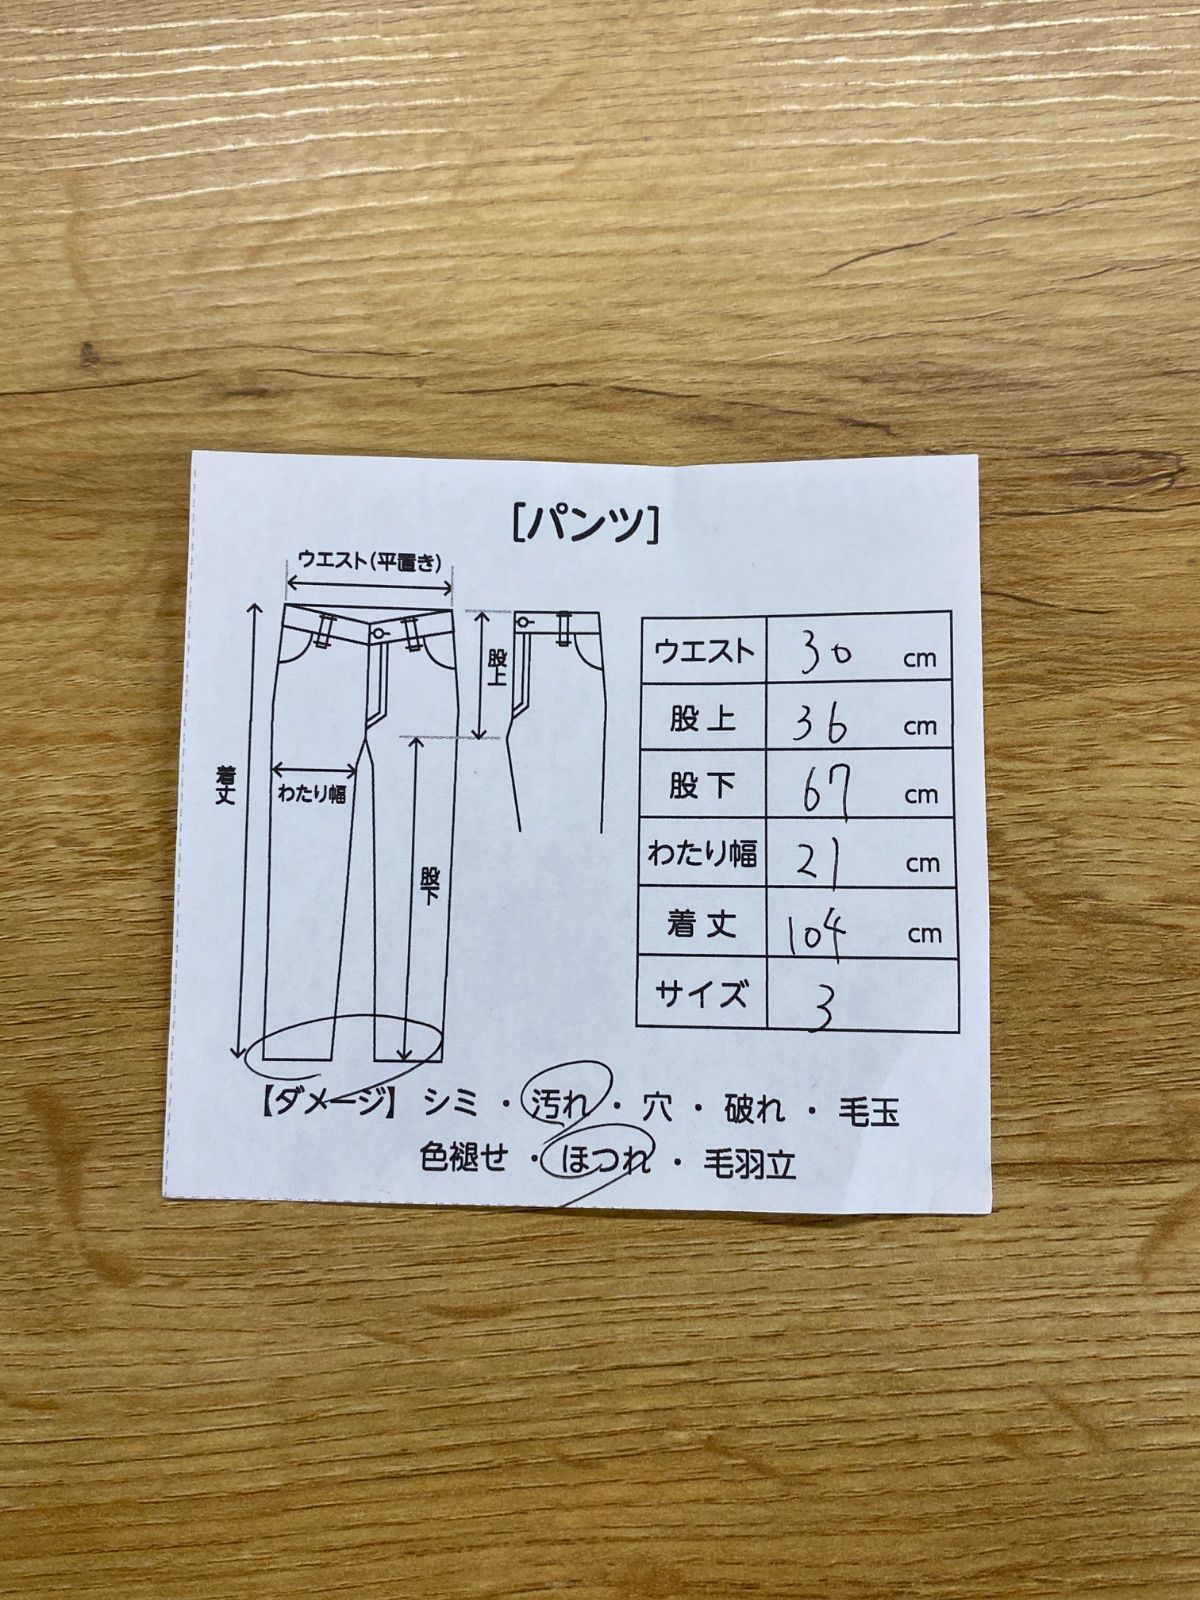 [パンツ]
ウエスト(平置き)
股上
着丈
わたり幅
股下
ウエスト 30 cm
股上 36 cm
股下 67 cm
わたり幅 21 cm
着丈 104 cm
サイズ 3
【ダメージ】 シミ・汚れ・穴・破れ・毛玉
色褪せ・ほつれ・毛羽立